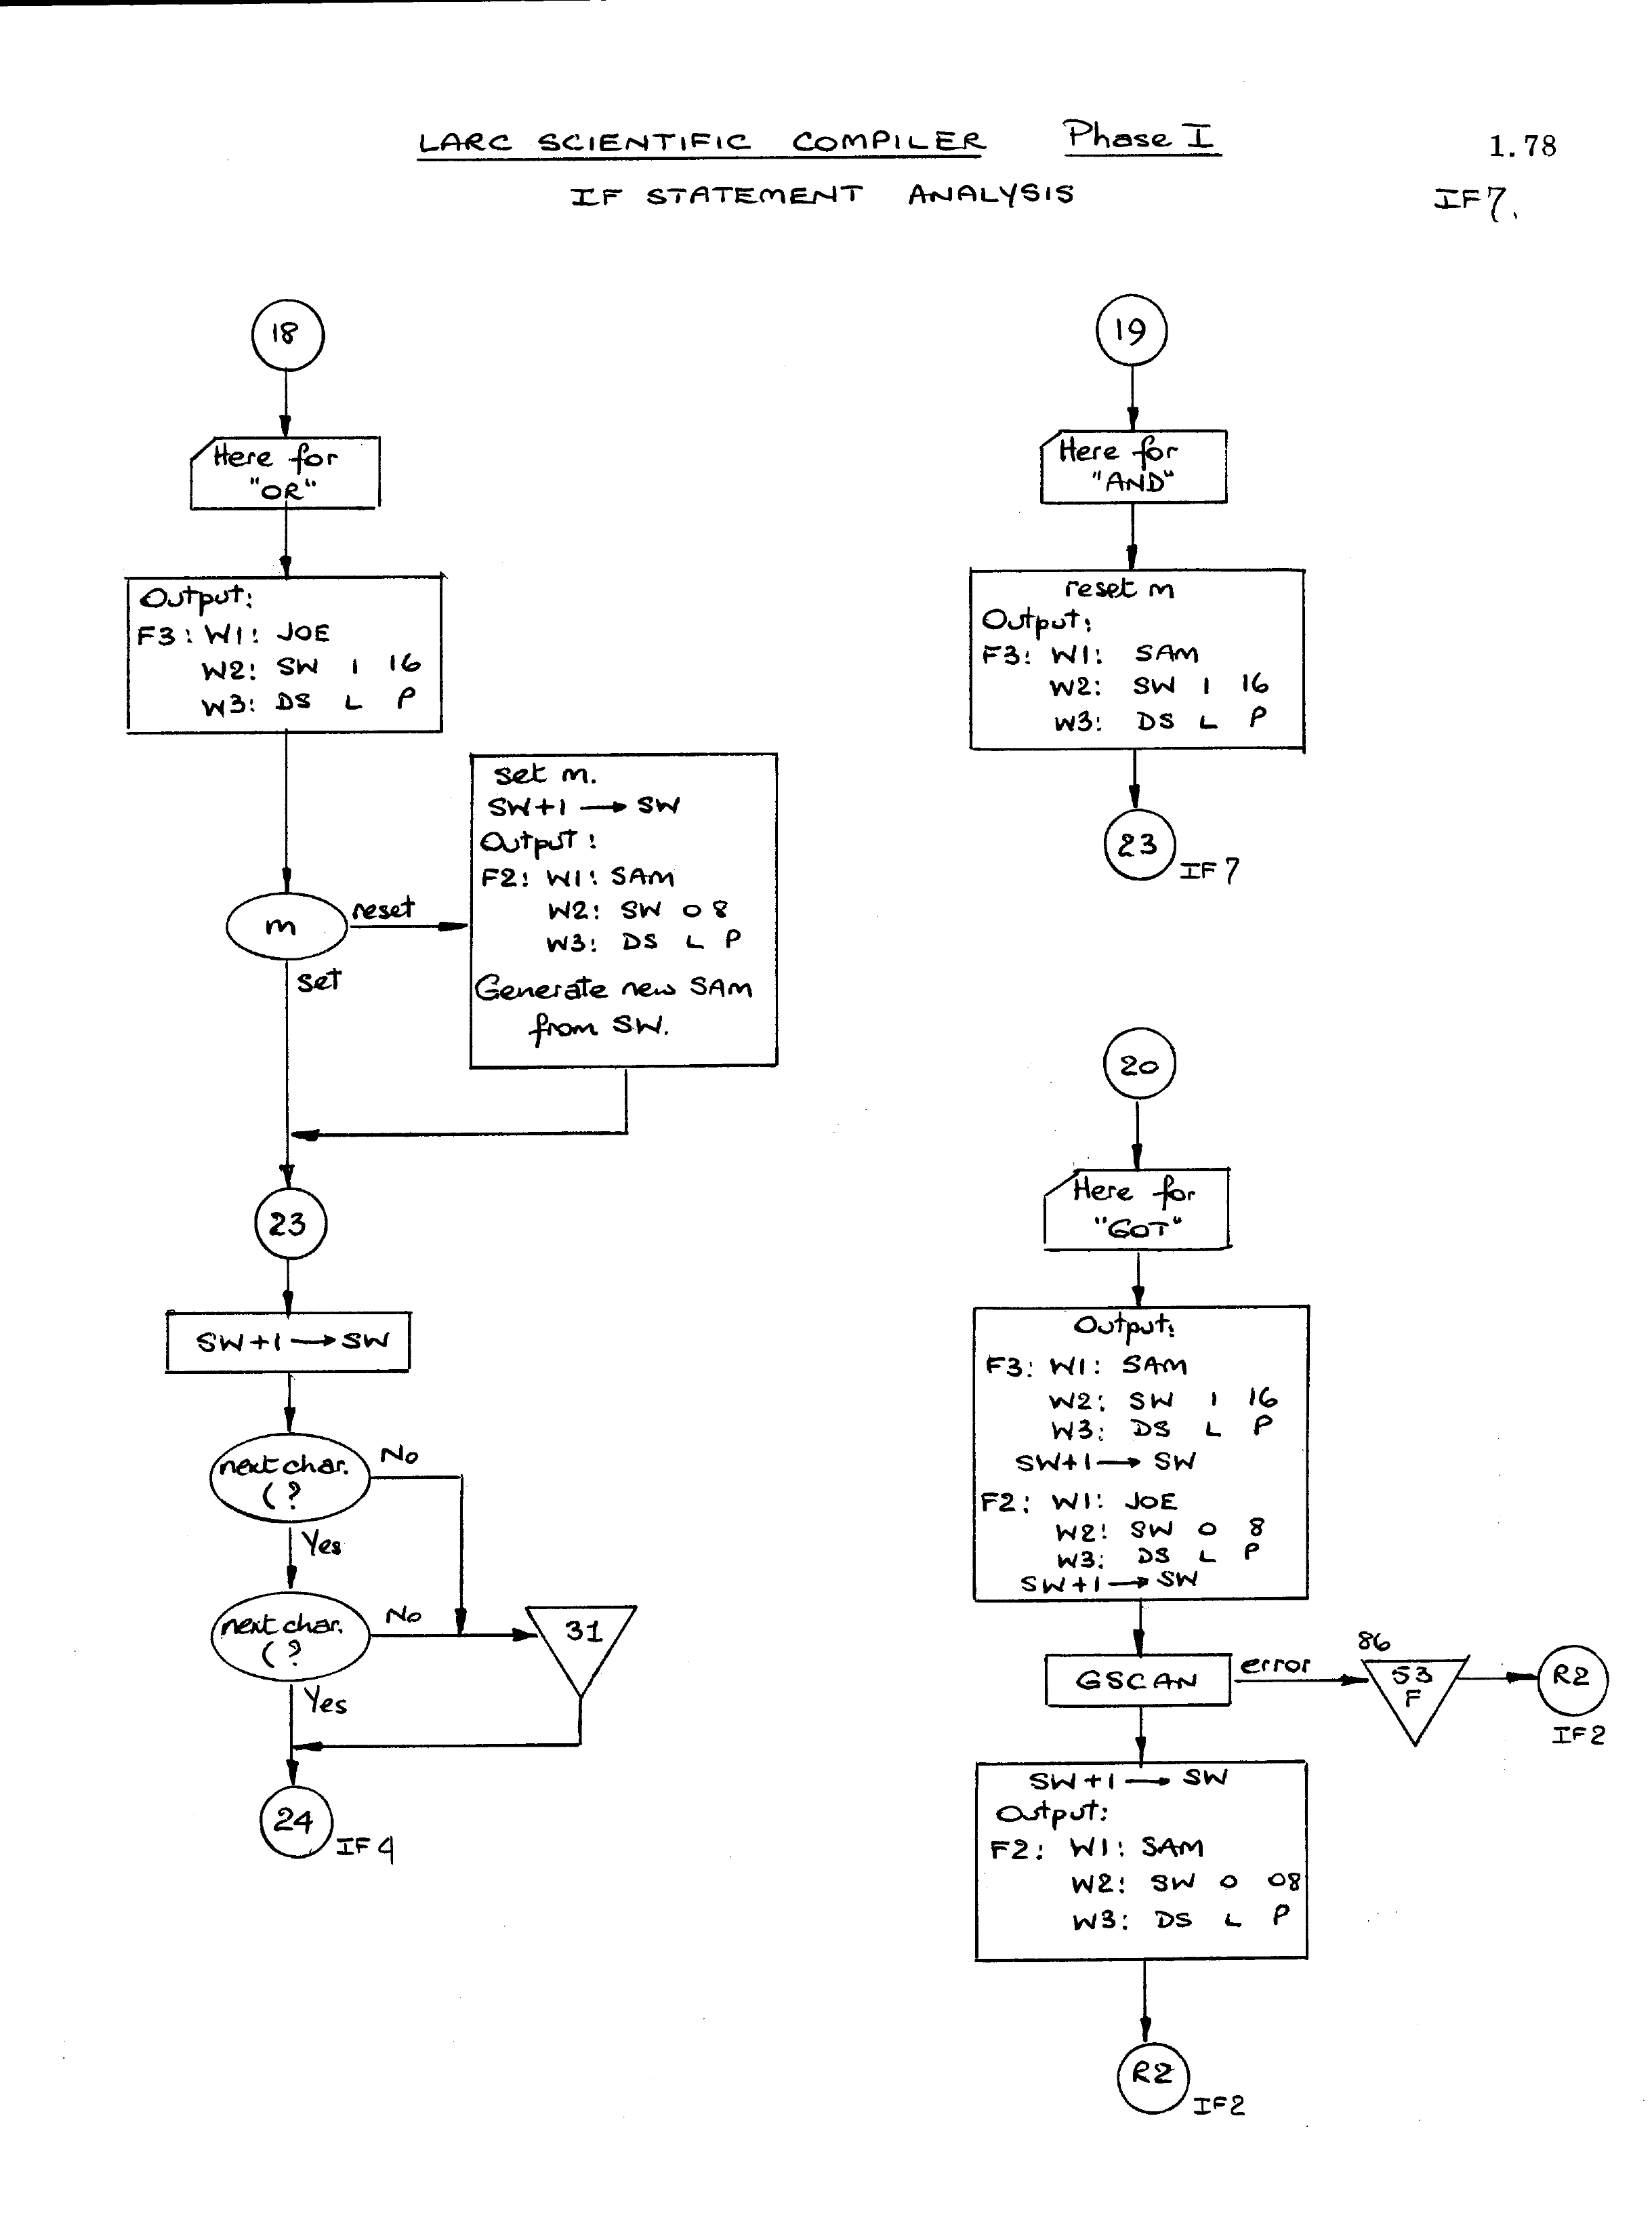 LARC SCIENTIFIC COMPILER Phase I 1.78
IF STATEMENT ANALYSIS IF7.
18
Here for
"OR"
Output:
F3: W1: JOE
W2: SW 1 16
W3: DS L P
m
reset
set
set m.
SW+1 → SW
Output:
F2: W1: SAM
W2: SW 0 8
W3: DS L P
Generate new SAM
from SW.
23
SW+1 → SW
next char.
( ?
No
Yes
next char.
( ?
No
Yes
31
24
IF4
19
Here for
"AND"
reset m
Output:
F3: W1: SAM
W2: SW 1 16
W3: DS L P
23
IF7
20
Here for
"GOT"
Output:
F3: W1: SAM
W2: SW 1 16
W3: DS L P
SW+1 → SW
F2: W1: JOE
W2: SW 0 8
W3: DS L P
SW+1 → SW
GSCAN
error
86
53
F
R2
IF2
SW+1 → SW
Output:
F2: W1: SAM
W2: SW 0 08
W3: DS L P
R2
IF2